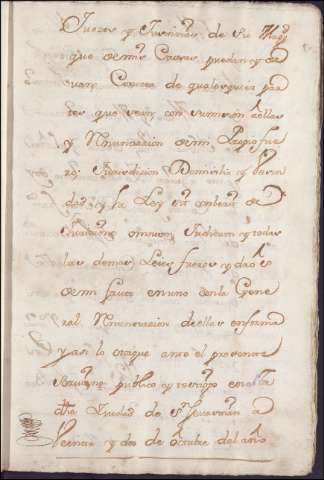 Juezes y Justicias de Su Magᵈ
que de mis Causas puedan y de
van Conocer de qualesquier par
tes que sean con sumision a ellas
y Renunciacion de mi Propio fue
ro Jurisdision Domicilio y Vecin
dad y la Ley
omnium Judicum y todas
las demas Leyes fueros y dros
de mi favor en uno con la Gene
ral Renunciacion de ellas en forma
y asi lo otorgue ante el presente
Escrivano publico y testigos en esta
dha Ciudad de Sⁿ German a
Veinte y dos de Octubre del año